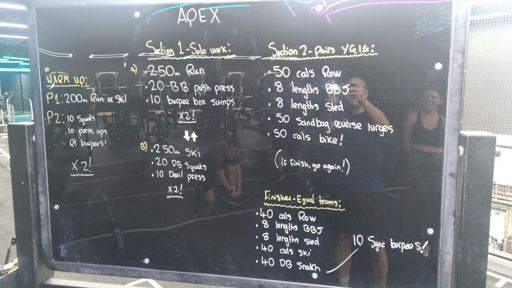 APEX
WARM UP:
P1: 200m Run or Ski
P2: 10 Squats
10 press ups
burpees!
X 2!
Section 1 - Solo work:
a) • 250m Run
• 20 DB push press
• 10 burpee box jumps
X2!
b) • 250m Ski
• 20 DB Squats
• 10 Devil press
X2!
Section 2 - Pairs YGIG:
• 50 cals Row
• 8 lengths BBJ
• 8 lengths sled
• 50 Sandbag reverse lunges
• 50 cals bike!
(if finish, go again!)
Finisher - Equal teams:
• 40 cals Row
• 8 lengths BBJ
• 8 lengths sled
• 40 cals ski
• 40 DB Snatch
10 Sync burpees!